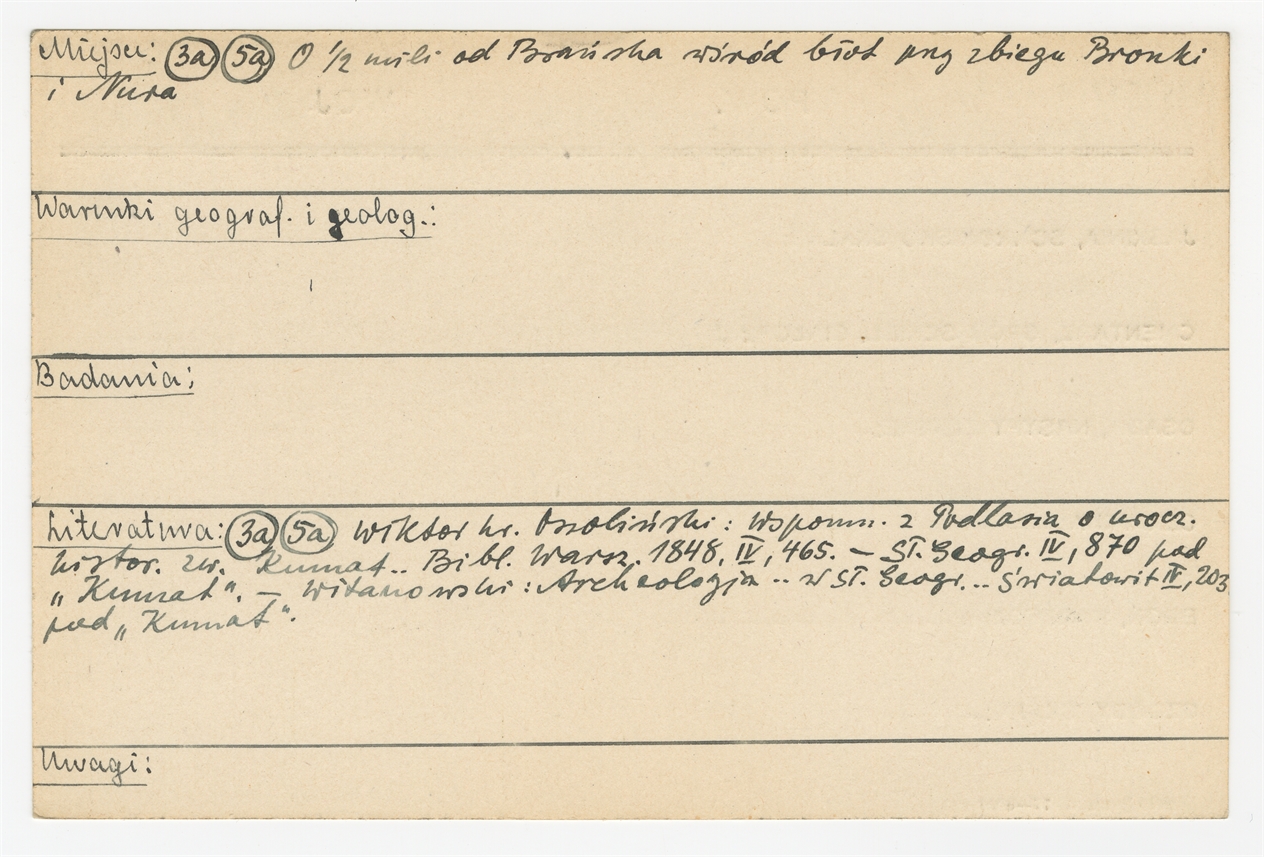 Miejsce: 3a 5a O 1/2 mili od Brańska wśród błot przy zbiegu Bronki
i Nura
Warunki geograf. i geolog.:
Badania:
Literatura: 3a 5a Wiktor hr. Ossoliński: Wspomn. z Podlasia o urocz.
histor. zw. Kumat.. Bibl. Warsz. 1848, IV, 465. — Sł. Geogr. IV, 870 pod
„Kumat". — Witanowski: Archeologja .. w Sł. Geogr. .. Światowit IV, 203
pod „Kumat".
Uwagi: